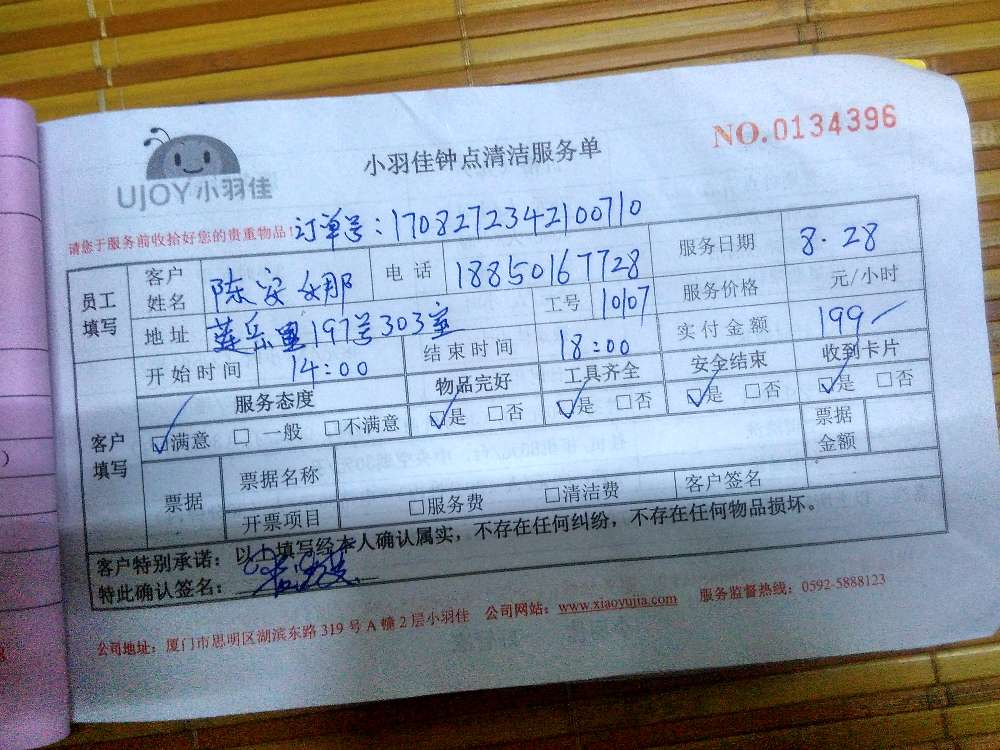 UJOY小羽佳
小羽佳钟点清洁服务单
NO.0134396
请您于服务前收拾好您的贵重物品!
订单号:1708272342100710
员工填写
客户姓名 陈安娜 电话 18850167728 服务日期 8.28
地址 莲岳里197号303室 工号 10107 服务价格 元/小时
开始时间 14:00 结束时间 18:00 实付金额 199
客户填写
服务态度 物品完好 工具齐全 安全结束 收到卡片
☑满意 □一般 □不满意 ☑是 □否 ☑是 □否 ☑是 □否 ☑是 □否
票据 票据名称 票据金额
开票项目 □服务费 □清洁费 客户签名
客户特别承诺:以上填写经本人确认属实,不存在任何纠纷,不存在任何物品损坏。
特此确认签名:
公司地址:厦门市思明区湖滨东路319号A幢2层小羽佳 公司网站:www.xiaoyujia.com 服务监督热线:0592-5888123